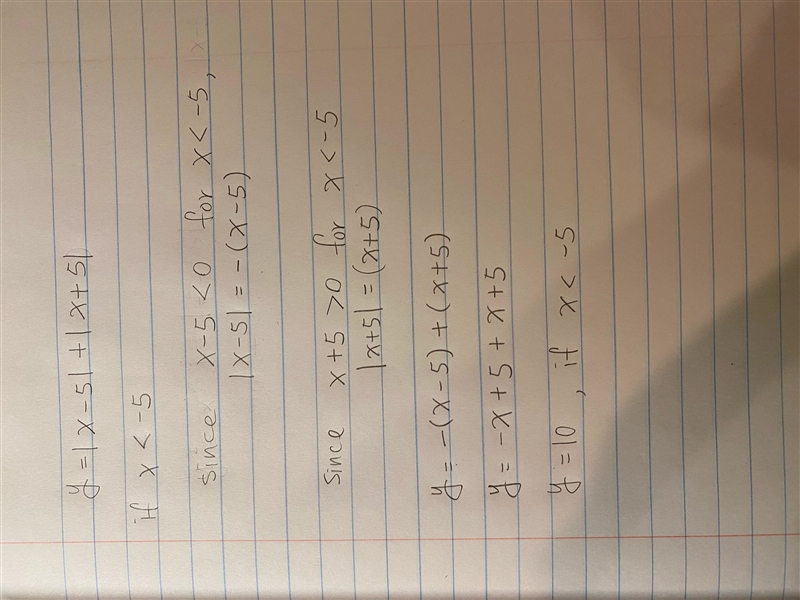 y = |x-5| + |x+5|
if x < -5
since x-5 < 0 for x < -5, x
|x-5| = -(x-5)
since x+5 > 0 for x < -5
|x+5| = (x+5)
y = -(x-5) + (x+5)
y = -x+5 + x+5
y = 10 , if x < -5